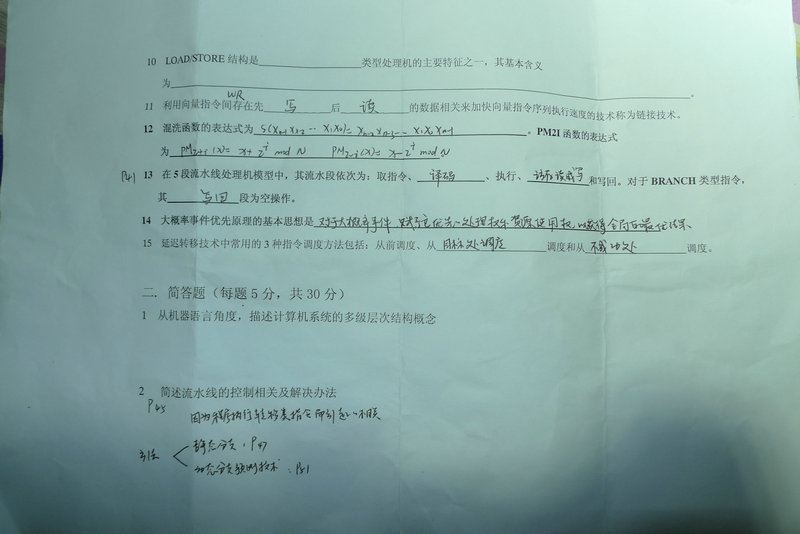 10 LOAD/STORE 结构是____________类型处理机的主要特征之一，其基本含义
为____________。
WR
11 利用向量指令间存在先 写 后 读 的数据相关来加快向量指令序列执行速度的技术称为链接技术。
12 混洗函数的表达式为 S(Xn-1 Xn-2 … X1X0)= Xn-2 Xn-3 … X1X0Xn-1 。PM2I 函数的表达式
为 PM2+i(X)= X+2^i mod N PM2-i(X)= X-2^i mod N
P41 13 在 5 段流水线处理机模型中，其流水段依次为：取指令、 译码 、执行、 访存读或写 和写回。对于 BRANCH 类型指令，
其 写回 段为空操作。
14 大概率事件优先原理的基本思想是 对于大概率事件 赋予它优先的处理权和资源使用权，以获得全局的最优结果、
15 延迟转移技术中常用的 3 种指令调度方法包括：从前调度、从 目标处调度 调度和从 不成功处 调度。
二．简答题（每题 5 分，共 30 分）
1 从机器语言角度，描述计算机系统的多级层次结构概念
2 简述流水线的控制相关及解决办法
P45
因为程序执行转移类指令而引起的相关
方法
静态分支：P47
动态分支预测技术：P51